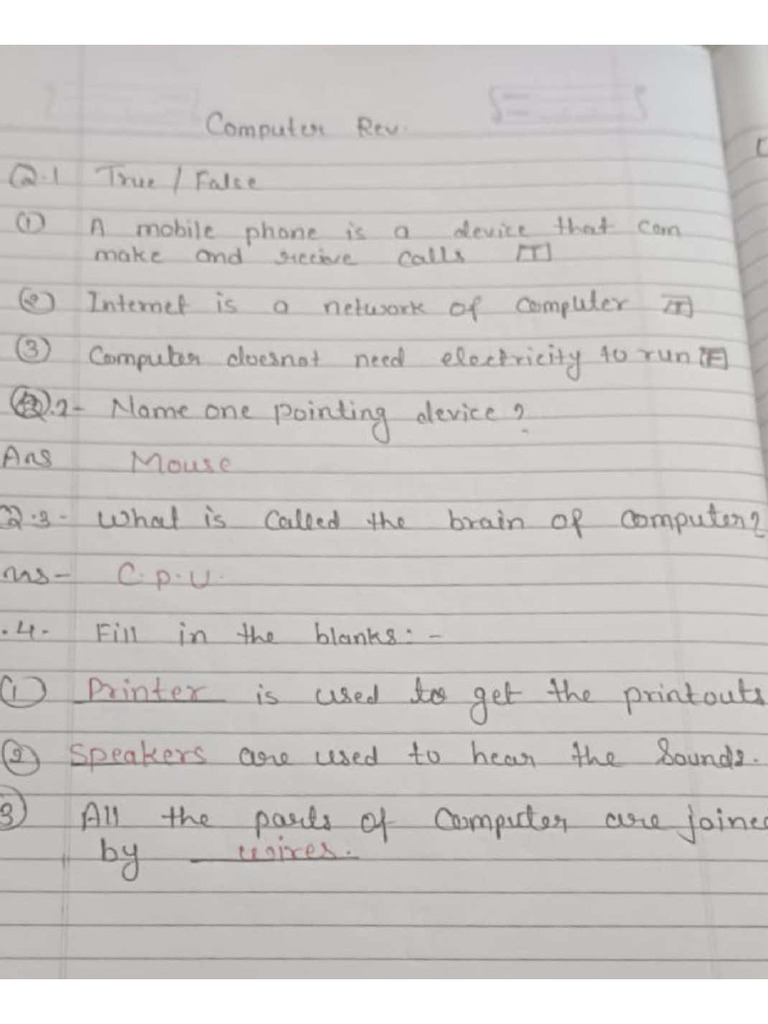 Computer Rev.
Q.1 True / False
① A mobile phone is a device that can
make and receive calls [T]
② Internet is a network of computer [T]
③ Computer doesnot need electricity to run [F]
Q.2- Name one pointing device?
Ans Mouse
Q.3- What is called the brain of computer?
ns- C.P.U.
.4- Fill in the blanks:-
① Printer is used to get the printouts
② Speakers are used to hear the Sounds.
③ All the parts of computer are joine
by wires.